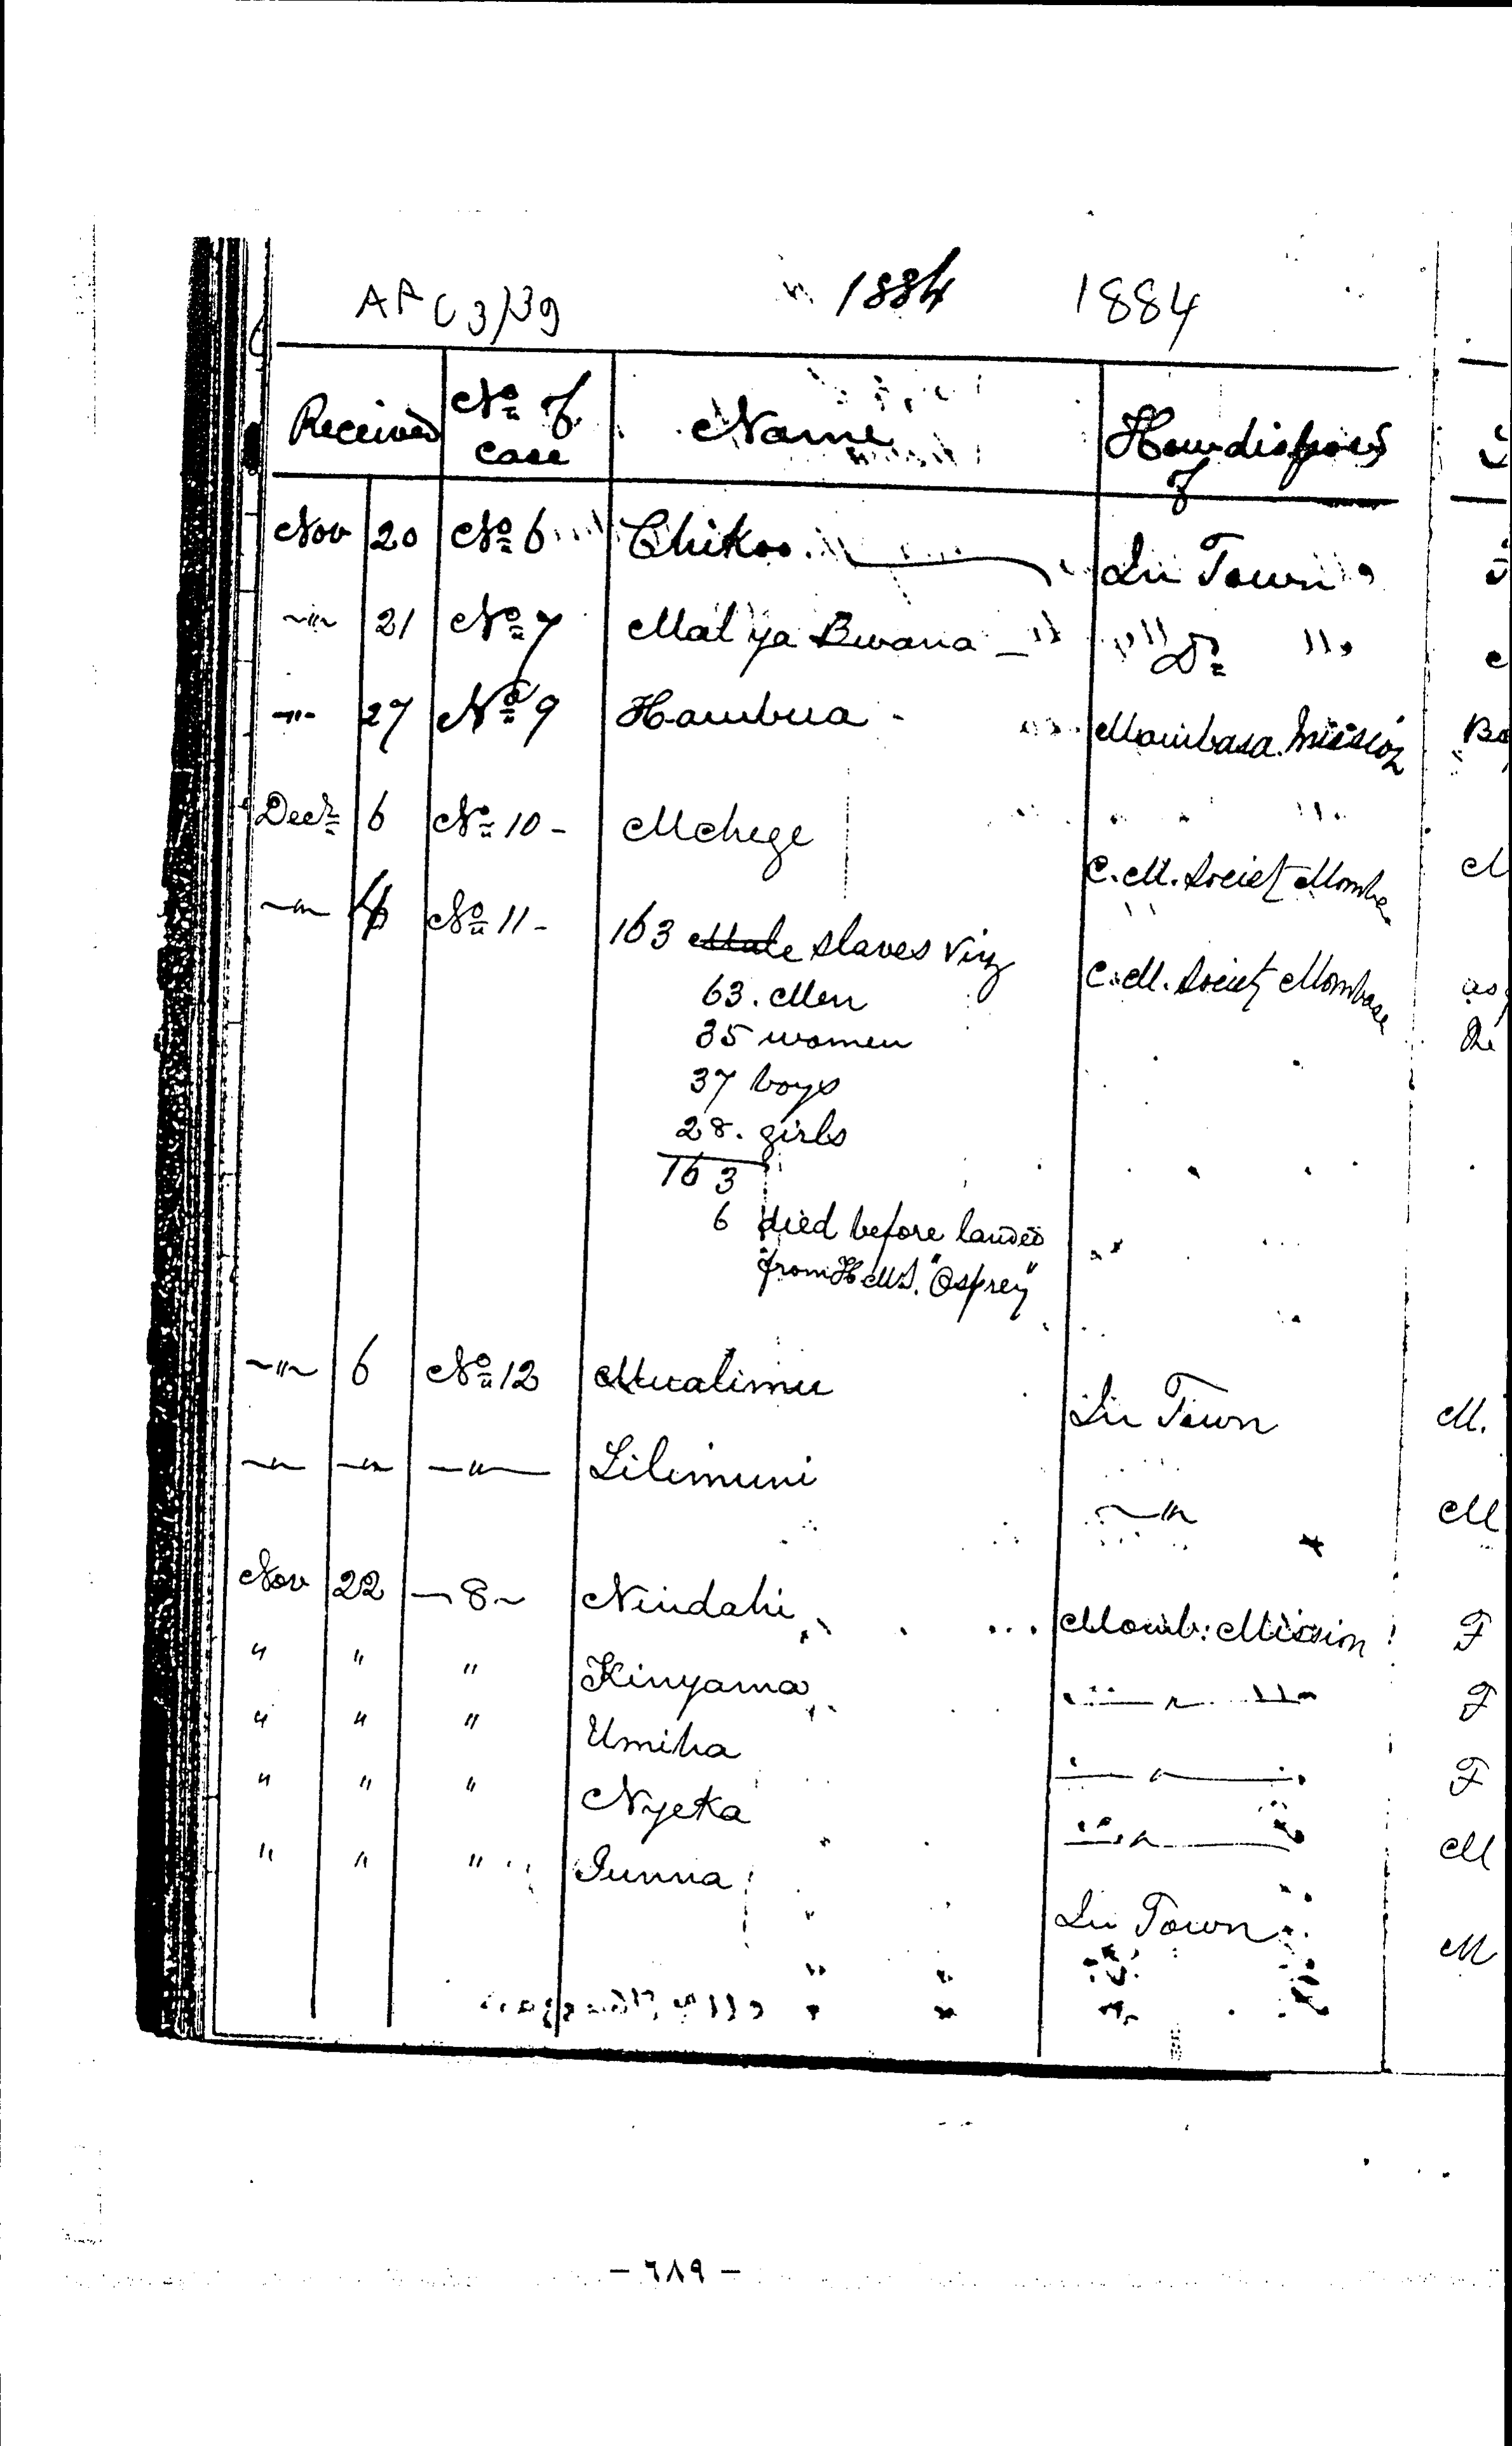 1884 1884
Received No of case Name How disposed of
Nov 20 No 6 Chikoo. In Town
" 21 No 7 Mal ya Bwana Do
" 27 No 9 Hambua Mombasa Mission
Decr 6 No 10 - Mchege C. M. Society Momba
" No 11 - 163 slaves viz C. M. Society Mombasa
63. Men
35 women
37 boys
28. girls
163
6 died before landed
from H.M.S. "Osprey"
" 6 No 12 Mualimu In Town M.
" " " Lilimuni " M
Nov 22 8 Nindahi Momb: Mission F
" " " Kinyama " F
" " " Umiha " F
" " " Nyeka " M
" " " Juma In Town M
- ٦٨٩ -